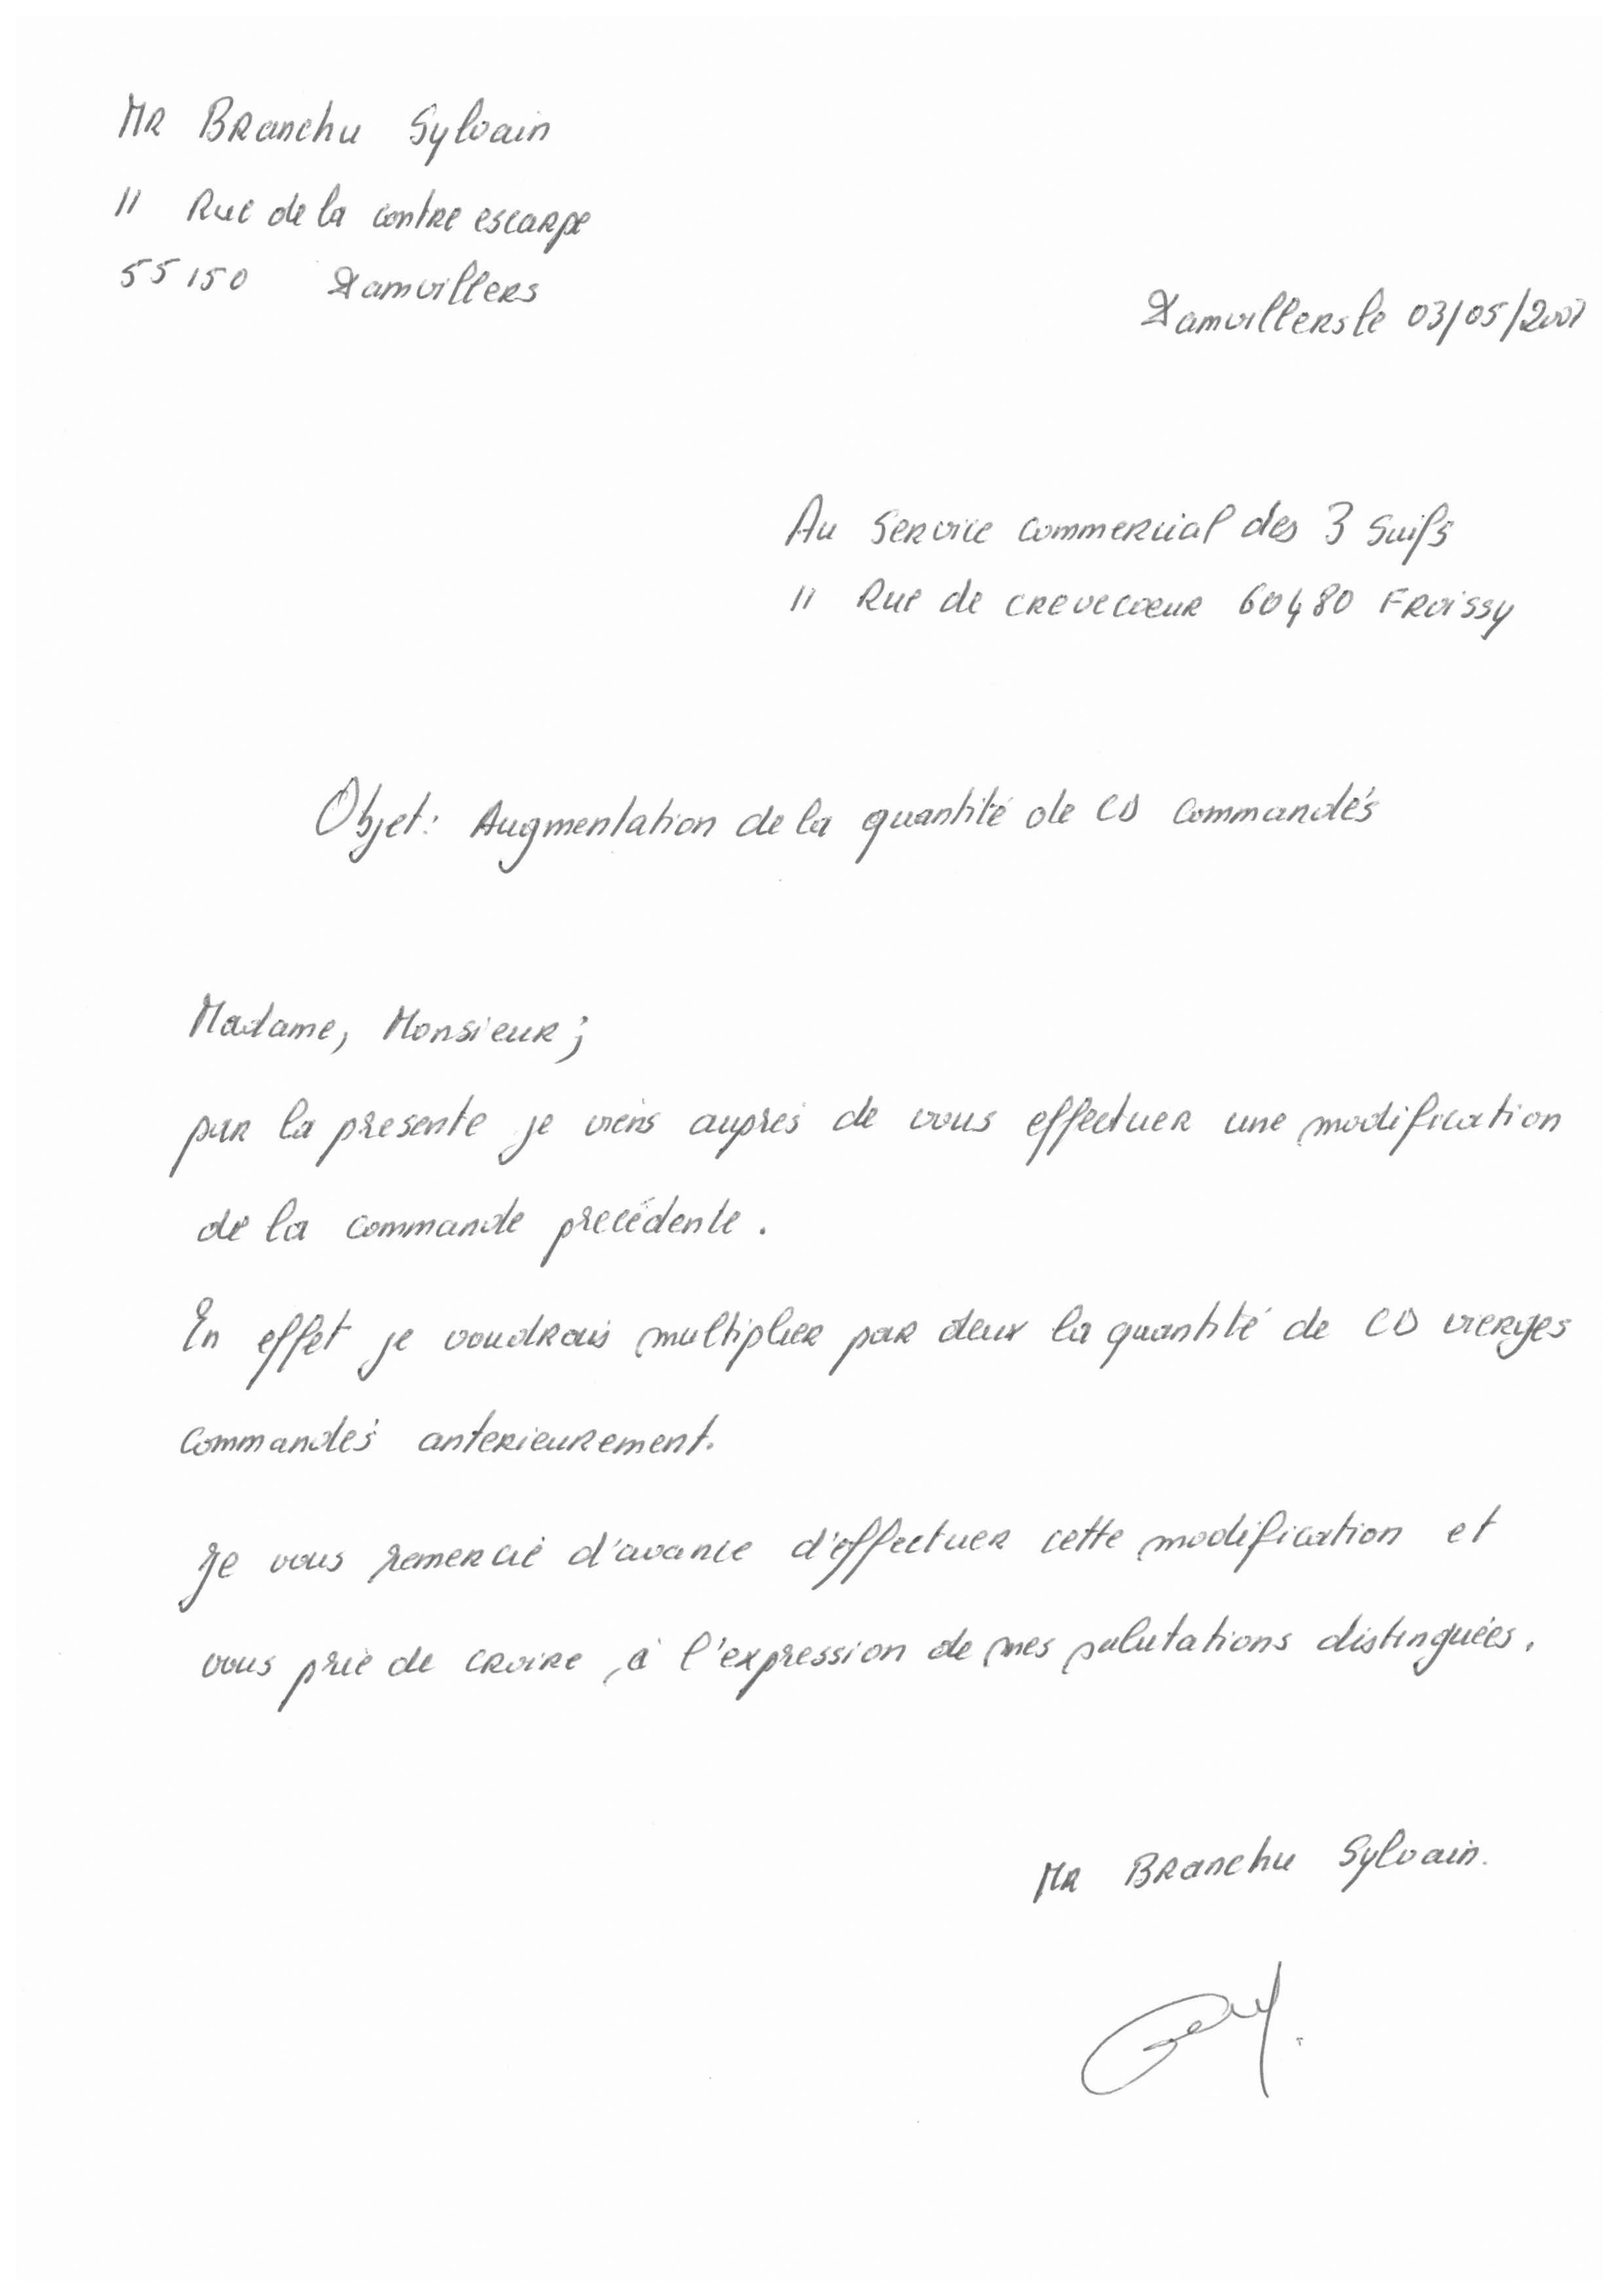 MR Branchu Sylvain
11 Rue de la contre escarpe
55150 Damvillers
Damvillers le 03/05/2007
Au Service commercial des 3 Suifs
11 Rue de crevecoeur 60480 Froissy
Objet: Augmentation de la quantité de CD commandés
Madame, Monsieur;
par la presente je viens auprès de vous effectuer une modification
de la commande precédente.
En effet je voudrais multiplier par deux la quantité de CD vierges
commandés anterieurement.
Je vous remercie d'avance d'effectuer cette modification et
vous prie de croire, à l'expression de mes salutations distinguées.
MR Branchu Sylvain.